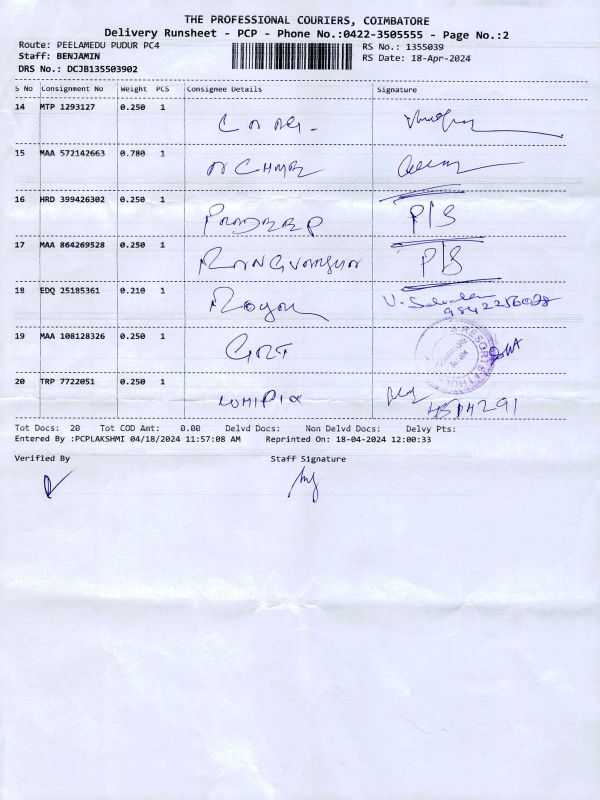 THE PROFESSIONAL COURIERS, COIMBATORE
Delivery Runsheet - PCP - Phone No.:0422-3505555 - Page No.:2
Route: PEELAMEDU PUDUR PC4
RS No.: 1355039
Staff: BENJAMIN
RS Date: 18-Apr-2024
DRS No.: DCJB135503902
S No Consignment No Weight PCS Consignee Details Signature
14 MTP 1293127 0.250 1
15 MAA 572142663 0.780 1
16 HRD 399426302 0.250 1 PRADEEP P/S
17 MAA 864269528 0.250 1 P/S
18 EDQ 25185361 0.210 1 Royal
19 MAA 108128326 0.250 1 GRT
RESORTS
20 TRP 7722051 0.250 1
Tot Docs: 20 Tot COD Amt: 0.00 Delvd Docs: Non Delvd Docs: Delvy Pts:
Entered By :PCPLAKSHMI 04/18/2024 11:57:08 AM Reprinted On: 18-04-2024 12:00:33
Verified By Staff Signature